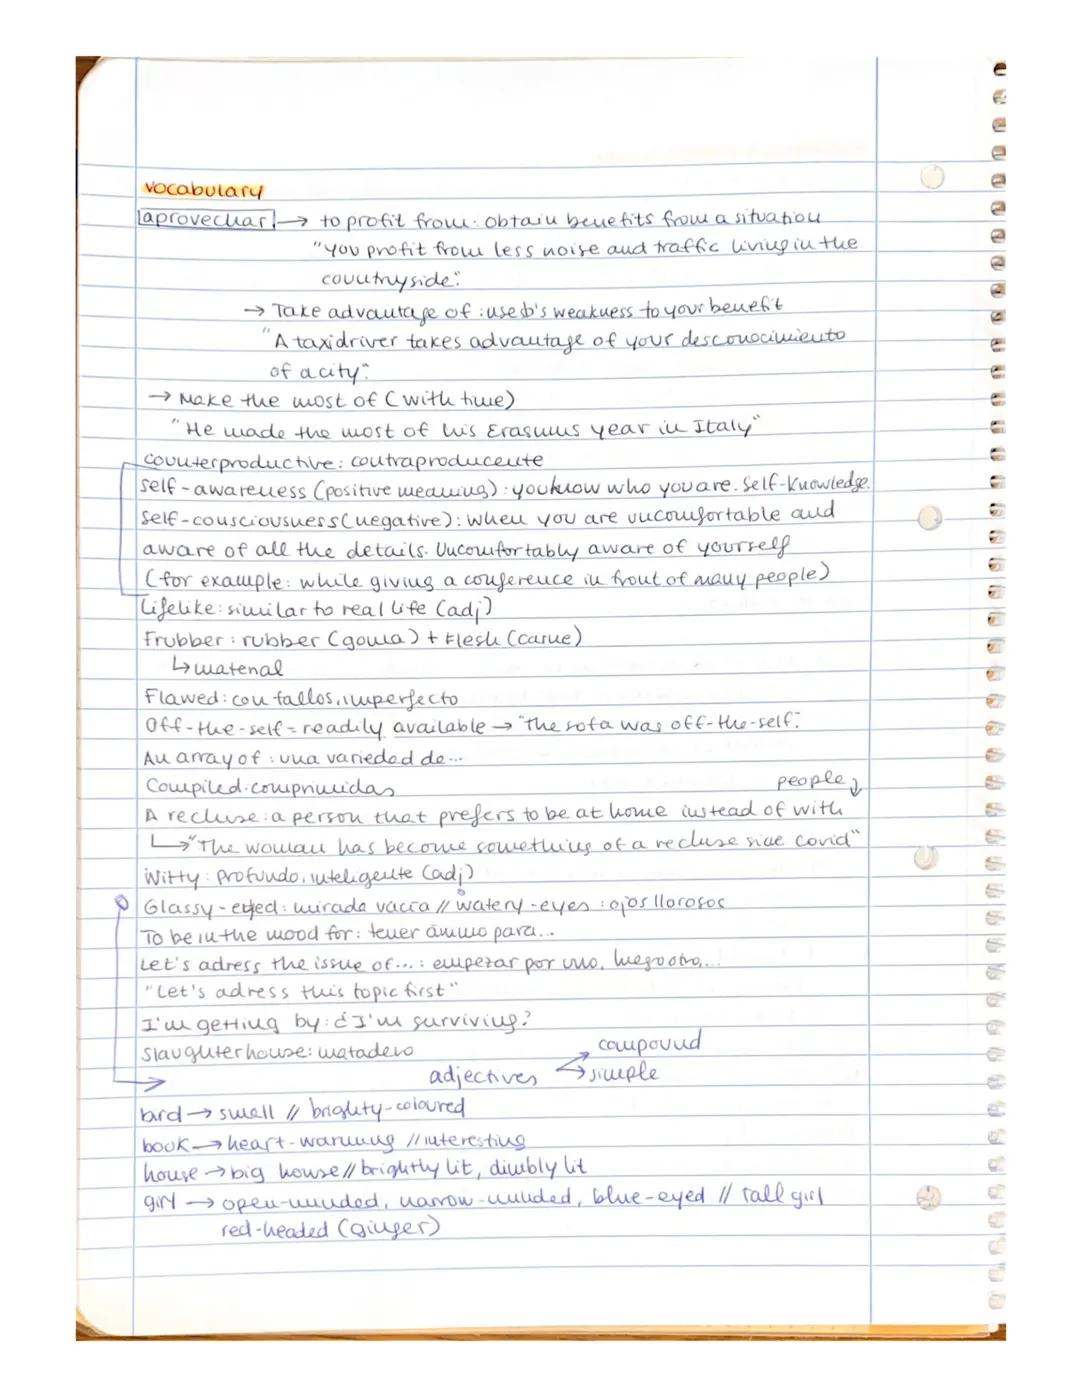 vocabulary
aprovechar → to profit from: obtain benefits from a situation
"you profit from less noise and traffic living in the
countryside".
→ Take advantage of: use sb's weakness to your benefit
"A taxi driver takes advantage of your desconocimiento
of a city".
→ Make the most of (with time)
"He made the most of his Erasmus year in Italy"
counterproductive: contraproducente
self-awareness (positive meaning): you know who you are. Self-knowledge.
self-consciousness (negative): when you are uncomfortable and
aware of all the details. Uncomfortably aware of yourself
(for example: while giving a conference in front of many people)
Lifelike: similar to real life (adj)
Frubber: rubber (goma) + Flesh (carne)
↳ material
Flawed: con fallos, imperfecto
Off-the-self = readily available → "the sofa was off-the-self".
An array of: una variedad de...
Compiled: comprimidas
people
A recluse: a person that prefers to be at home instead of with
↳ "The woman has become something of a recluse sice covid"
Witty: profundo, inteligente (adj)
Glassy-eyed: mirada vacía // watery-eyes: ojos llorosos
To be in the mood for: tener ánimo para...
Let's adress the issue of...: empezar por uno, luego otro,...
"Let's adress this topic first"
I'm getting by: ¿I'm surviving?
Slaughterhouse: matadero
compound
adjectives → simple
bird → small // brighty-coloured
book → heart-warming // interesting
house → big house // brightly lit, dimbly lit
girl → open-minded, narrow-minded, blue-eyed // tall girl
red-headed (ginger)